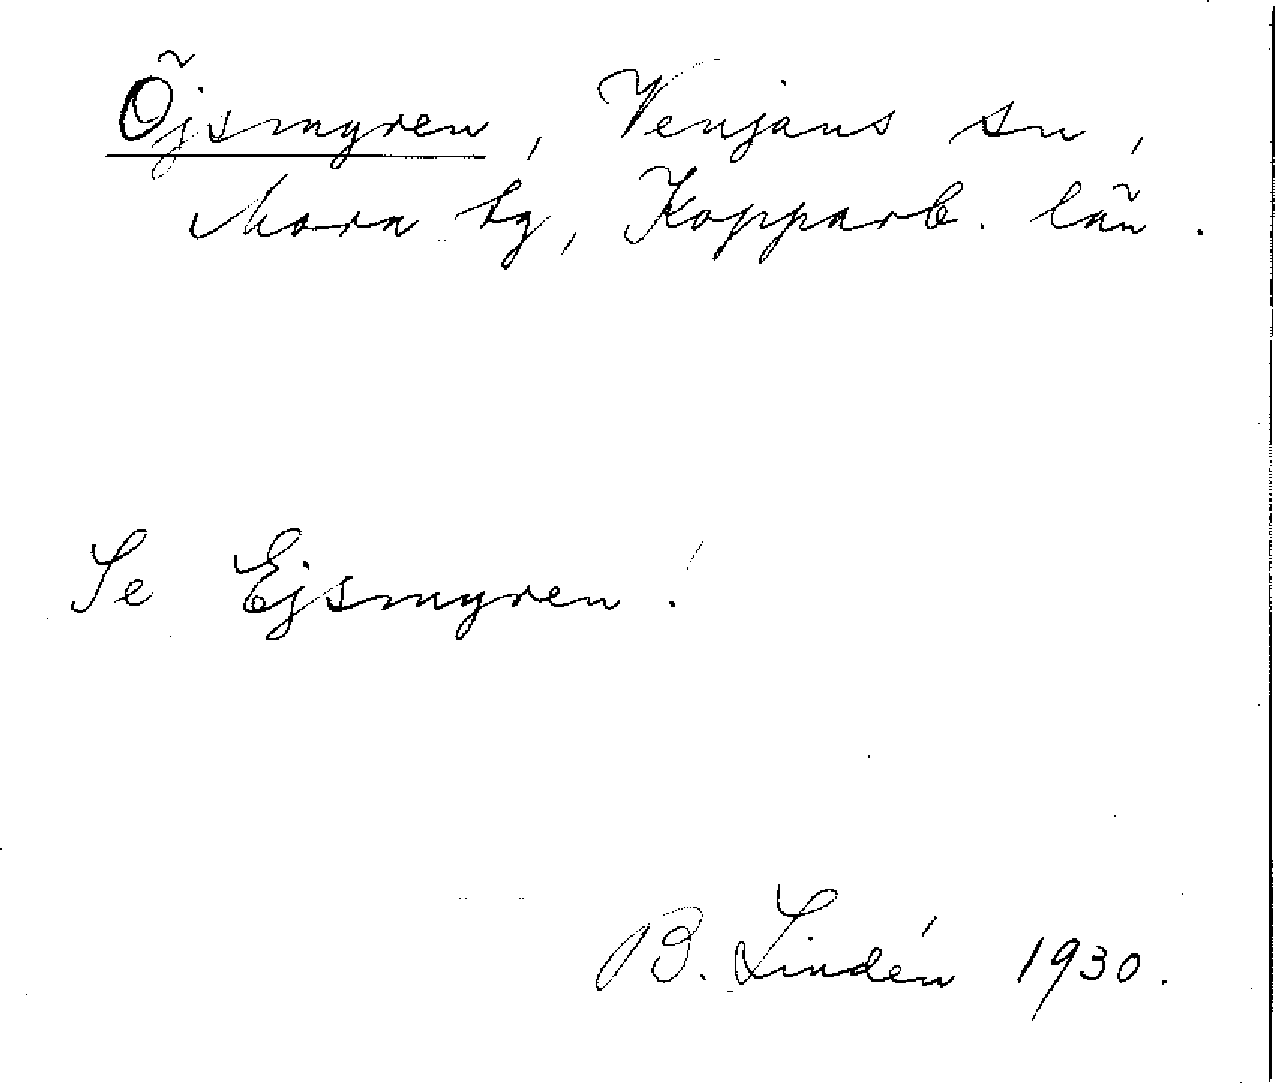 Öjsmyren, Venjans sn,
Mora tg, Kopparb. län.
Se Ejsmyren!
B. Lindén 1930.